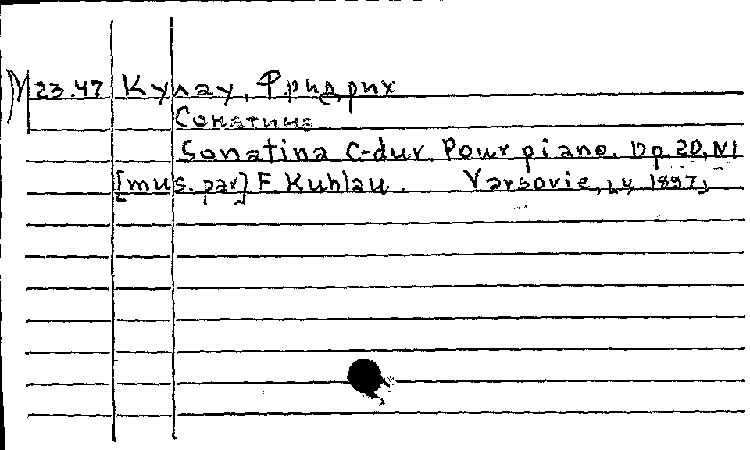 М 23.47 Кулау, Фридрих
Сонатина
Sonatina C-dur. Pour piano. Op 20, N1
[mus. par] F. Kuhlau. Varsovie, 1897,